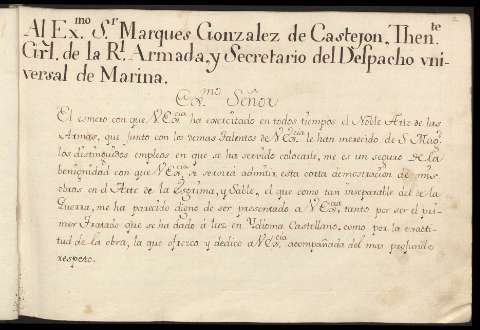 Al Ex.mo S.r Marques Gonzalez de Castejon, Then.te
Grl. de la Rl. Armada, y Secretario del Despacho vni-
versal de Marina.
Ex.mo Señor
El esmero con que V Ex.cia ha exercitado en todos tiempos el Noble Arte de las
Armas, que junto con los demas talentos de V Ex.cia le han merecido de S. Mag.d
los distinguidos empleos en que se ha servido colocarle, me es un seguro de la
benignidad con que V Ex.cia se servirá admitir esta corta demostracion de mis
obras en el Arte de la Esgrima, y Sable, el que como tan inseparable del de la
Guerra, me ha parecido digno de ser presentado a V Ex.cia tanto por ser el pri-
mer Tratado que se ha dado à luz en Ydioma Castellano, como por la exacti-
tud de la obra, la que ofrezco y dedico a V Ex.cia acompañada del mas profundo
respeto.